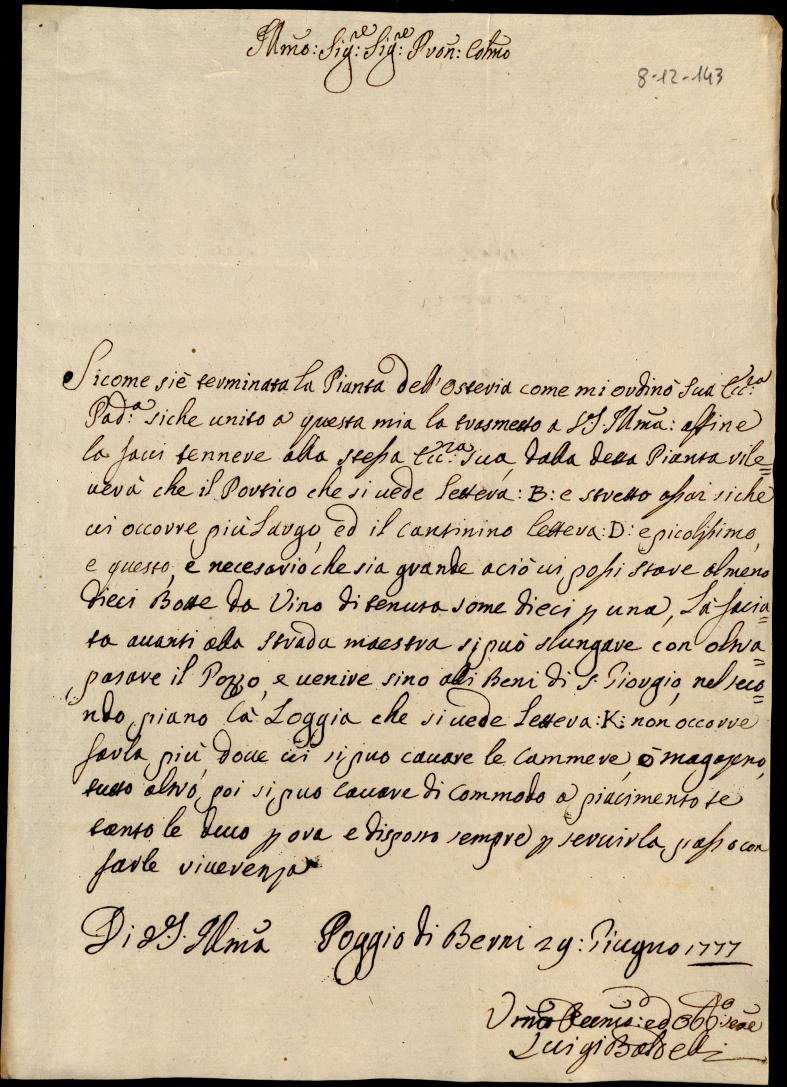 Illmo: Sig:re Sig:re Pron: Colmo
8-12-143
Sicome si è terminata la Pianta dell'Osteria come mi ordinò Sua Ecc:za
Pad:a siche unito a questa mia la trasmetto a V.S. Illma: affine
la facci tennere alla stessa Ecc:za Sua, dalla detta Pianta rile=
verà che il Portico che si vede Lettera: B: e stretto assai siche
vi occorre più Largo, ed il cantinino lettera: D: e picolissimo,
e questo, e necesario, che sia grande aciò vi possi stare almeno
dieci Botte da Vino di tenuta some dieci p una, La facia=
ta avanti alla strada maestra si può slungare con oltra=
pasare il Pozzo, e venire sino alli Beni di S. Giorgio, nel seco=
ndo piano La Loggia che si vede Lettera: K: non occorre
farla più dove vi si può cavare le Cammere, ò magazeno,
tutto altro, poi si può Cavare di Commodo a piacimento
tanto le devo p ora e disposto sempre p servirla passo con
farle riverenza
Di V.S. Illma Poggio di Berni 29: Giugno 1777
ed Obb:o Sere
Luigi Baldelli